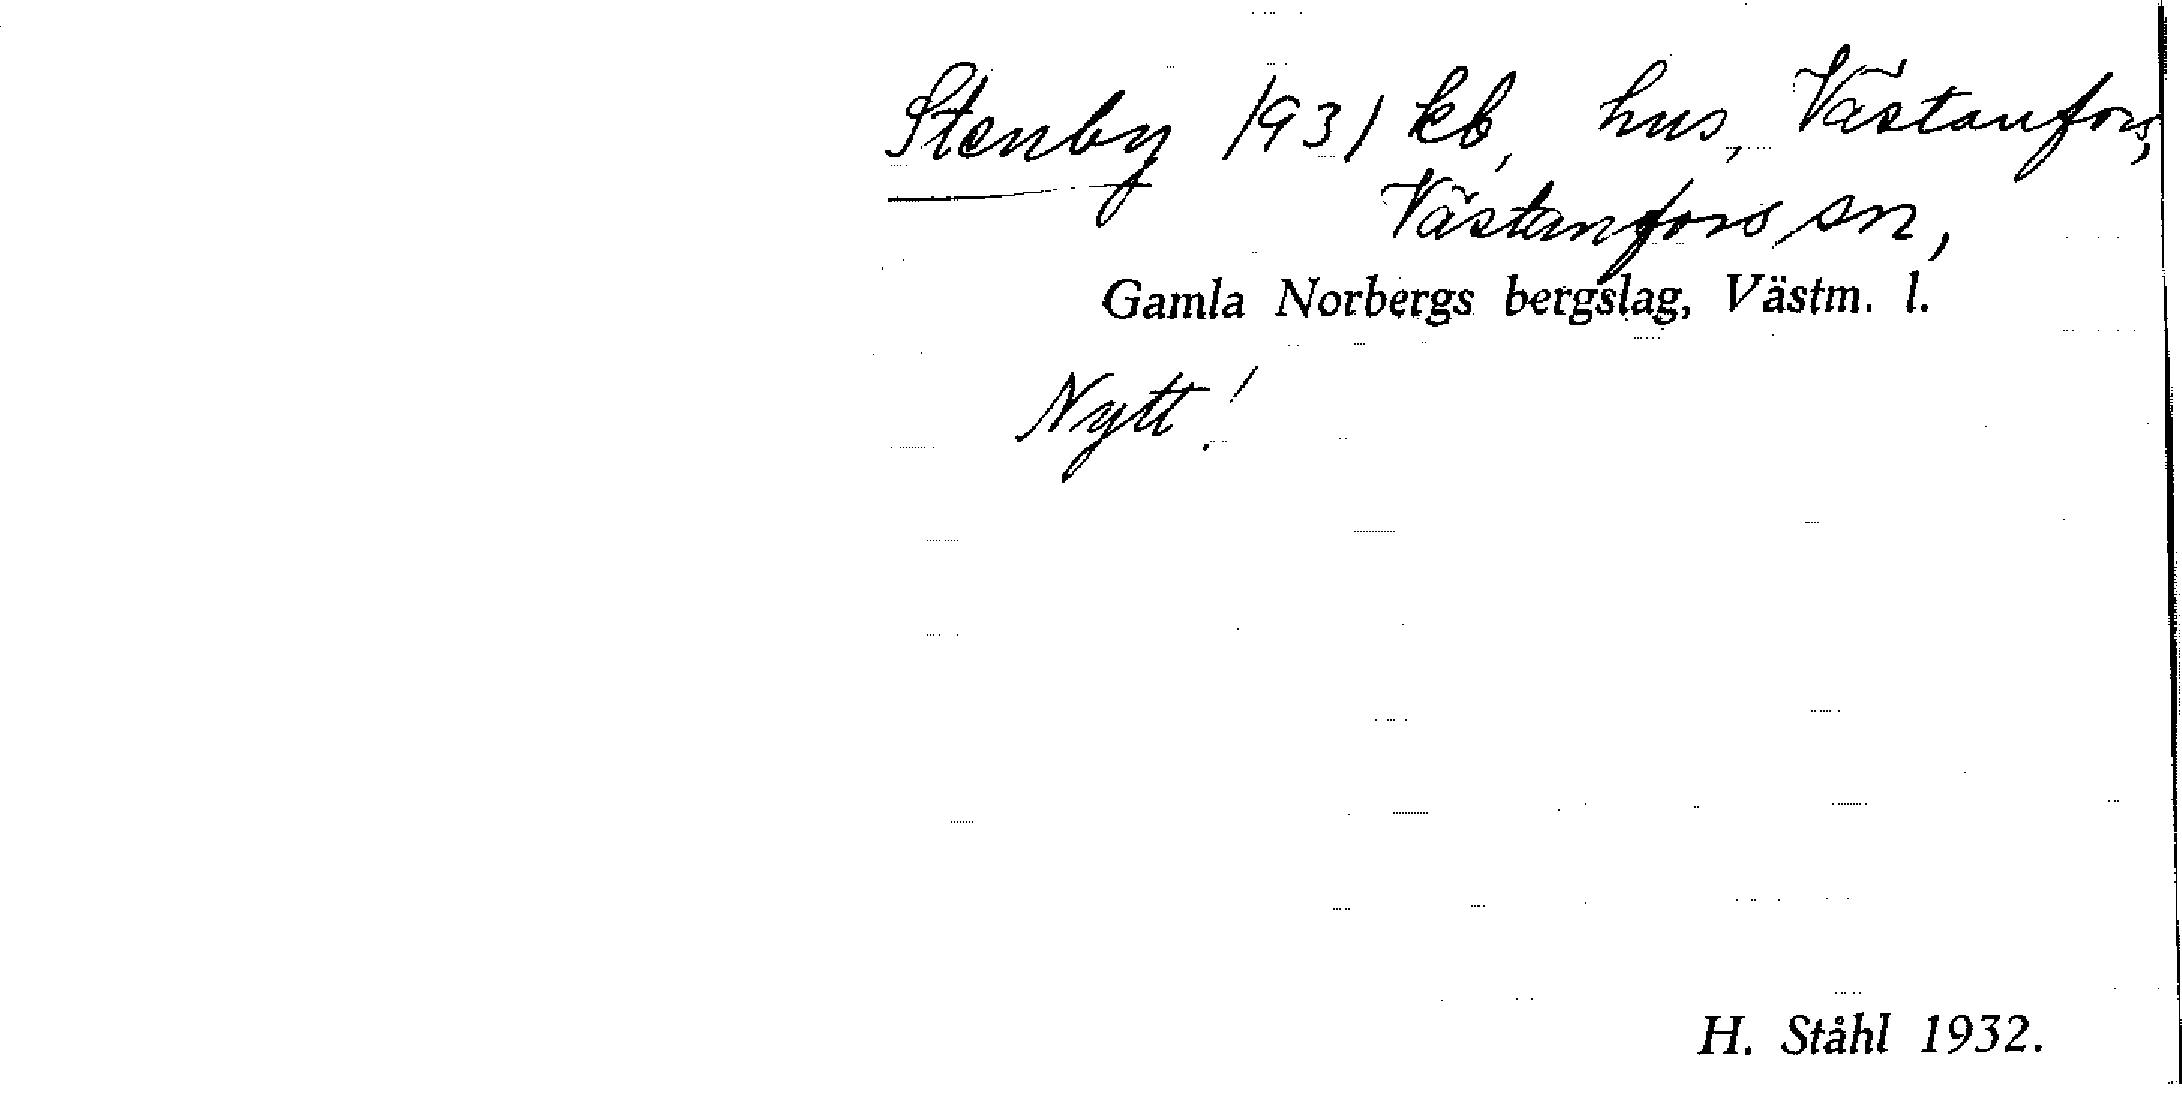 Stenby 1931 kb, hus, Västanfors,
Västanfors sn,
Gamla Norbergs bergslag, Västm. l.
Nytt!
H. Ståhl 1932.